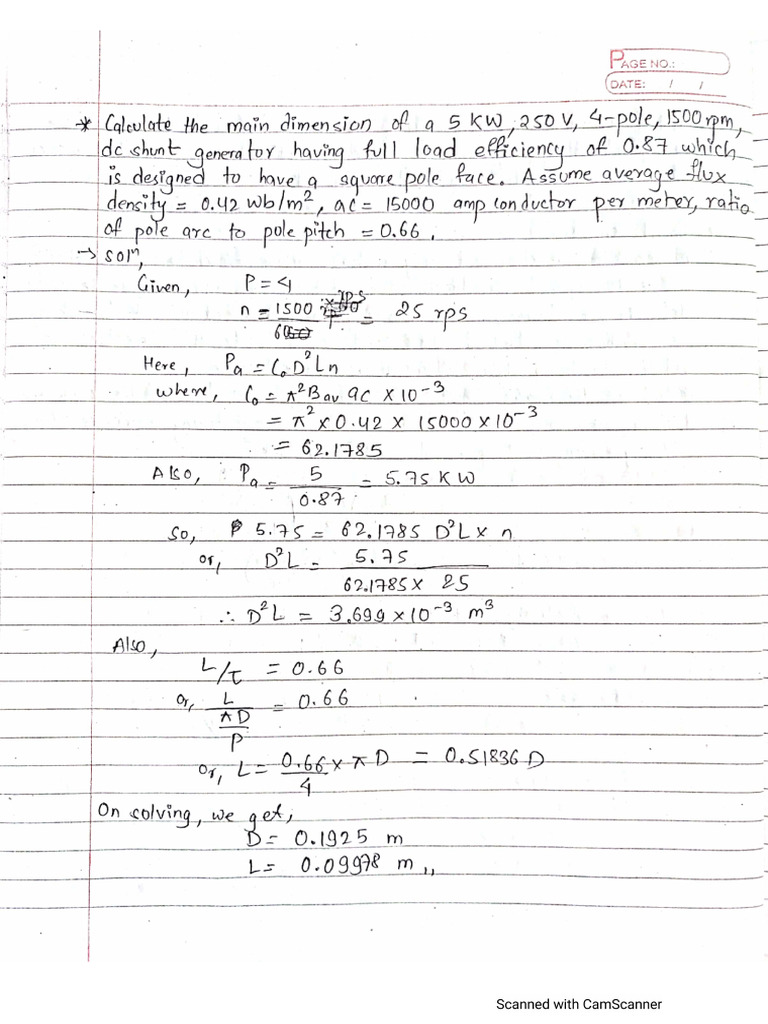 PAGE NO.:
DATE: / /
* Calculate the main dimension of a 5 KW, 250 V, 4-pole, 1500 rpm,
dc shunt generator having full load efficiency of 0.87 which
is designed to have a square pole face. Assume average flux
density = 0.42 wb/m², ac = 15000 amp conductor per meter, ratio
of pole arc to pole pitch = 0.66.
→ Solⁿ,
Given, P = 4
n = 1500/60 = 25 rps
Here, Pa = C₀D²Ln
where, C₀ = π²Bav ac × 10⁻³
= π² × 0.42 × 15000 × 10⁻³
= 62.1785
Also, Pa = 5/0.87 = 5.75 KW
So, 5.75 = 62.1785 D²L × n
or, D²L = 5.75/(62.1785 × 25)
∴ D²L = 3.699 × 10⁻³ m³
Also,
L/τ = 0.66
or, L/(πD/P) = 0.66
or, L = 0.66/4 × πD = 0.51836 D
On solving, we get,
D = 0.1925 m
L = 0.09978 m,,
Scanned with CamScanner